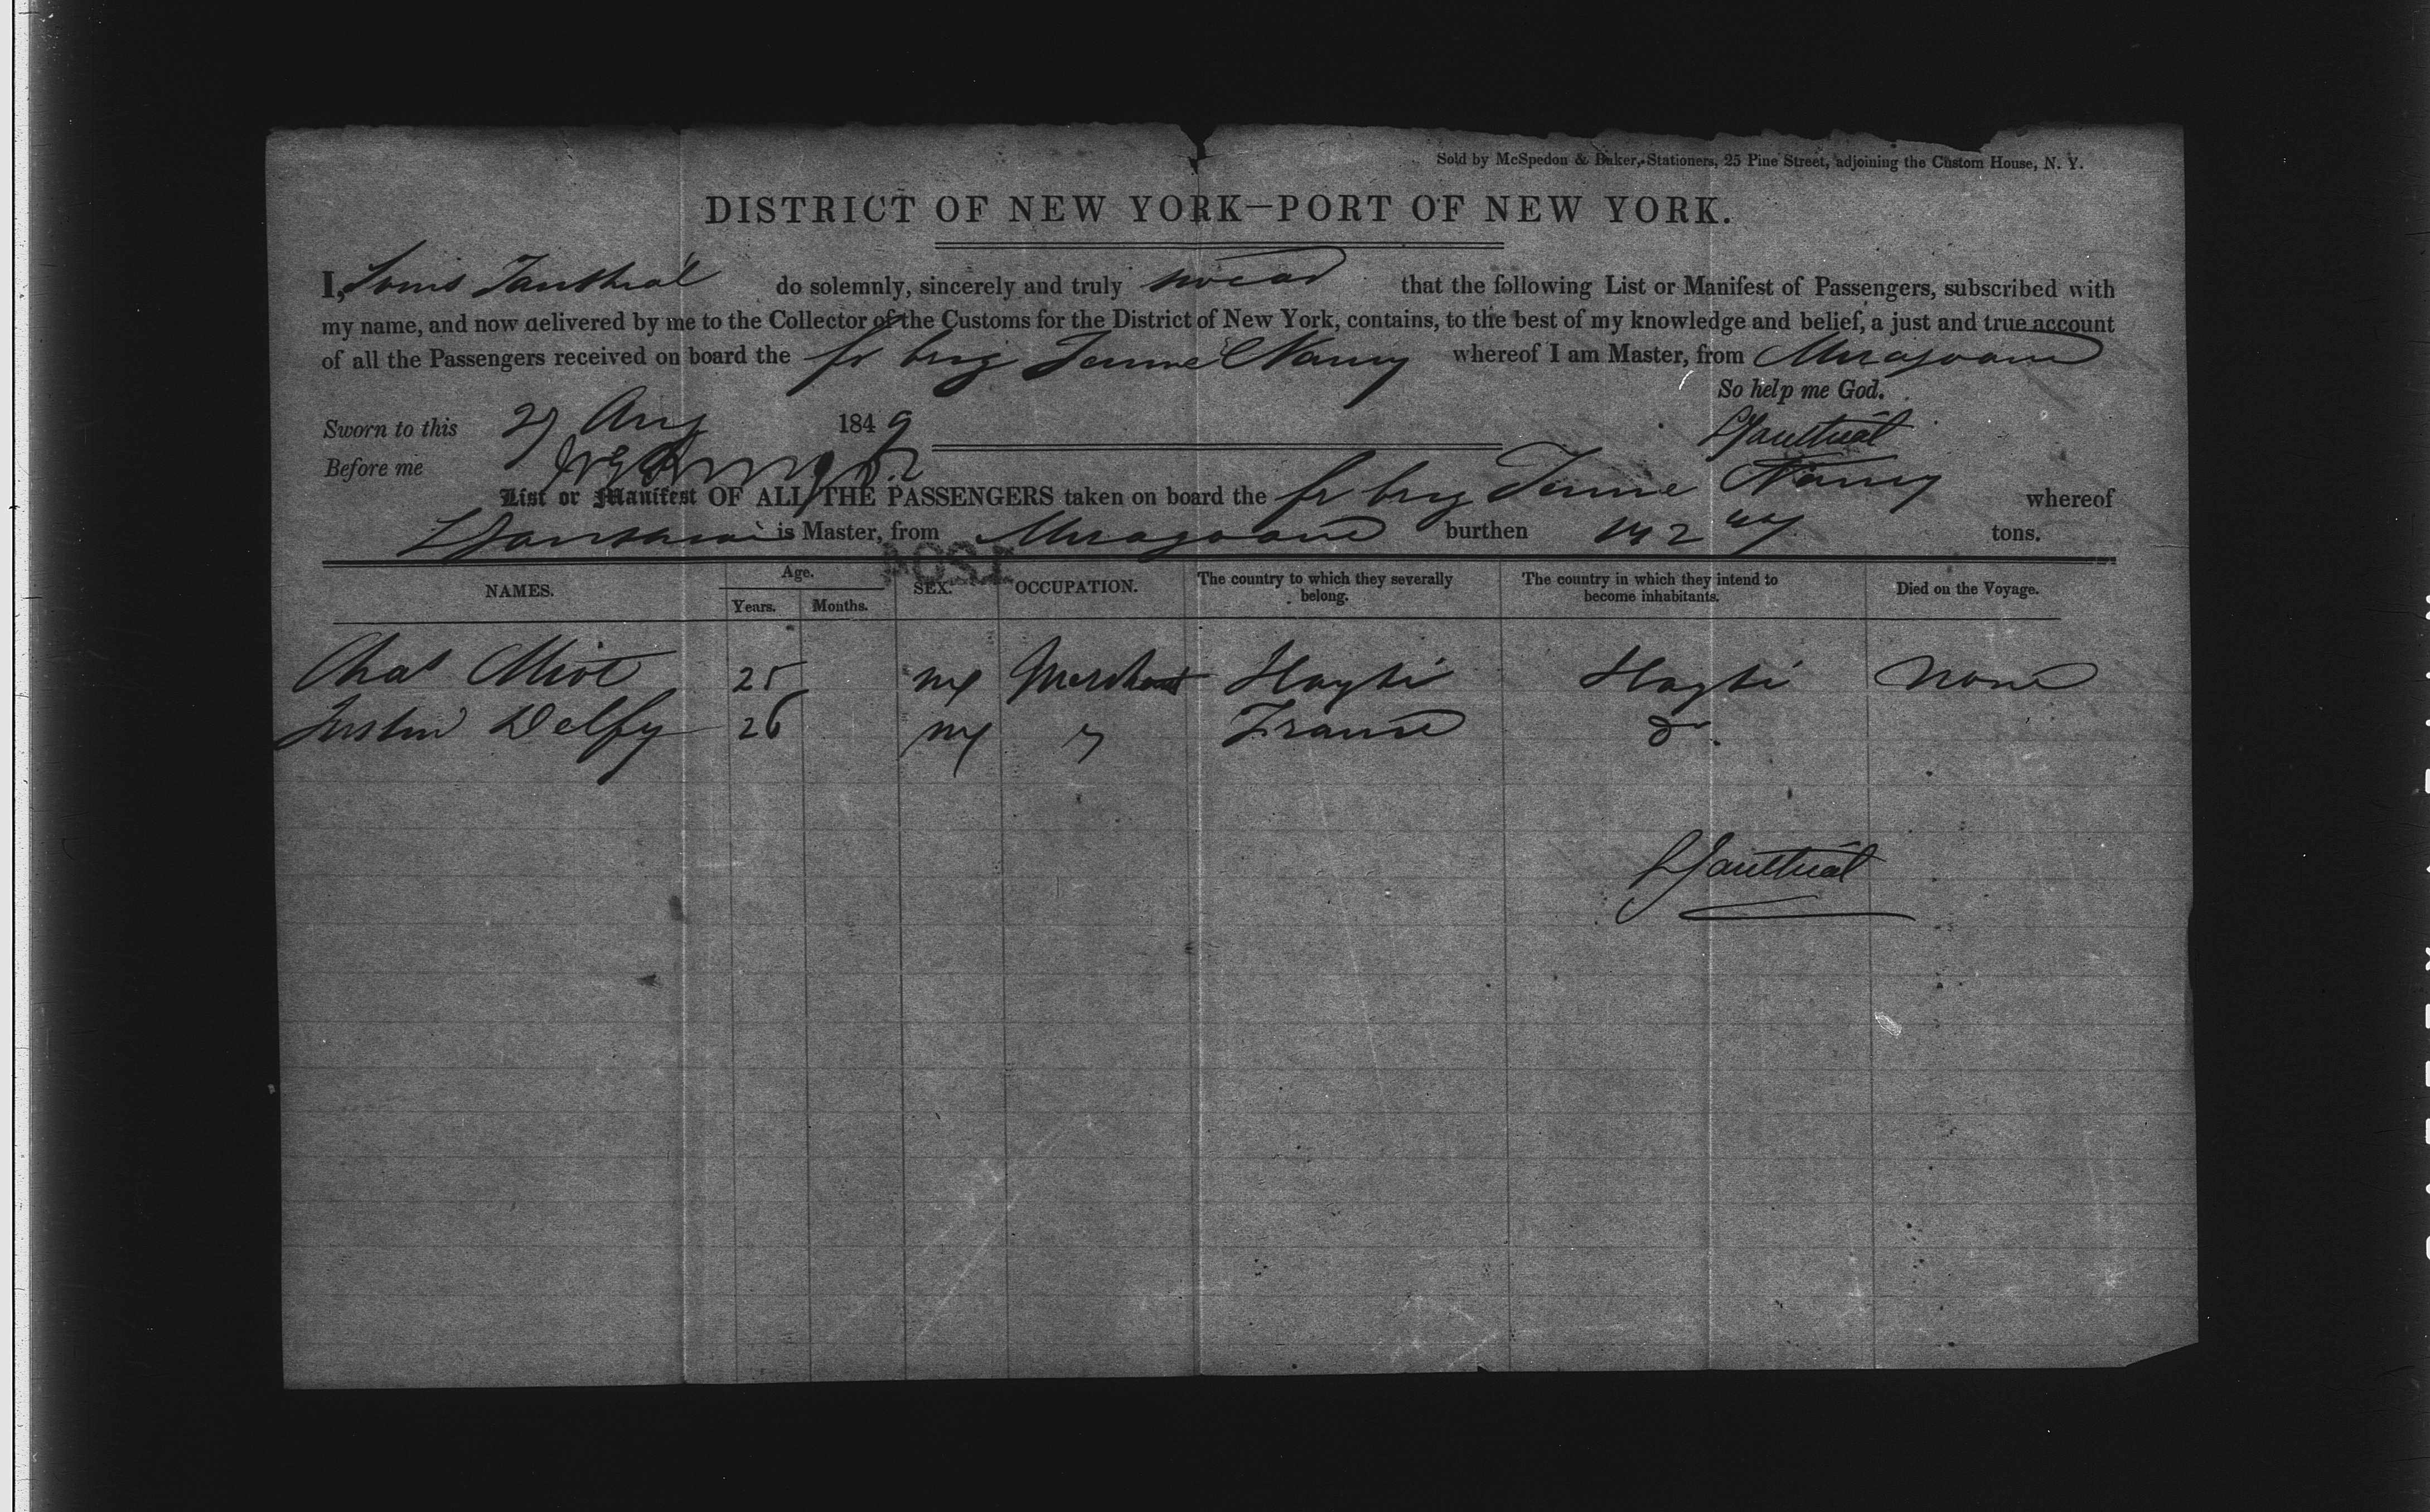 Sold by McSpedon & Baker, Stationers, 25 Pine Street, adjoining the Custom House, N. Y.
DISTRICT OF NEW YORK—PORT OF NEW YORK.
I, Louis do solemnly, sincerely and truly swear that the following List or Manifest of Passengers, subscribed with
my name, and now delivered by me to the Collector of the Customs for the District of New York, contains, to the best of my knowledge and belief, a just and true account
of all the Passengers received on board the fr brig Jeune Nancy whereof I am Master, from Miragoane
So help me God.
Sworn to this 27 Aug 1849
Before me
List or Manifest OF ALL THE PASSENGERS taken on board the fr brig Jeune Nancy whereof
is Master, from Miragoane burthen tons.
NAMES. Age. Years. Months. SEX. OCCUPATION. The country to which they severally belong. The country in which they intend to become inhabitants. Died on the Voyage.
Chas Miot 25 m Merchant Hayti Hayti None
Justin Delfy 26 m " France do.